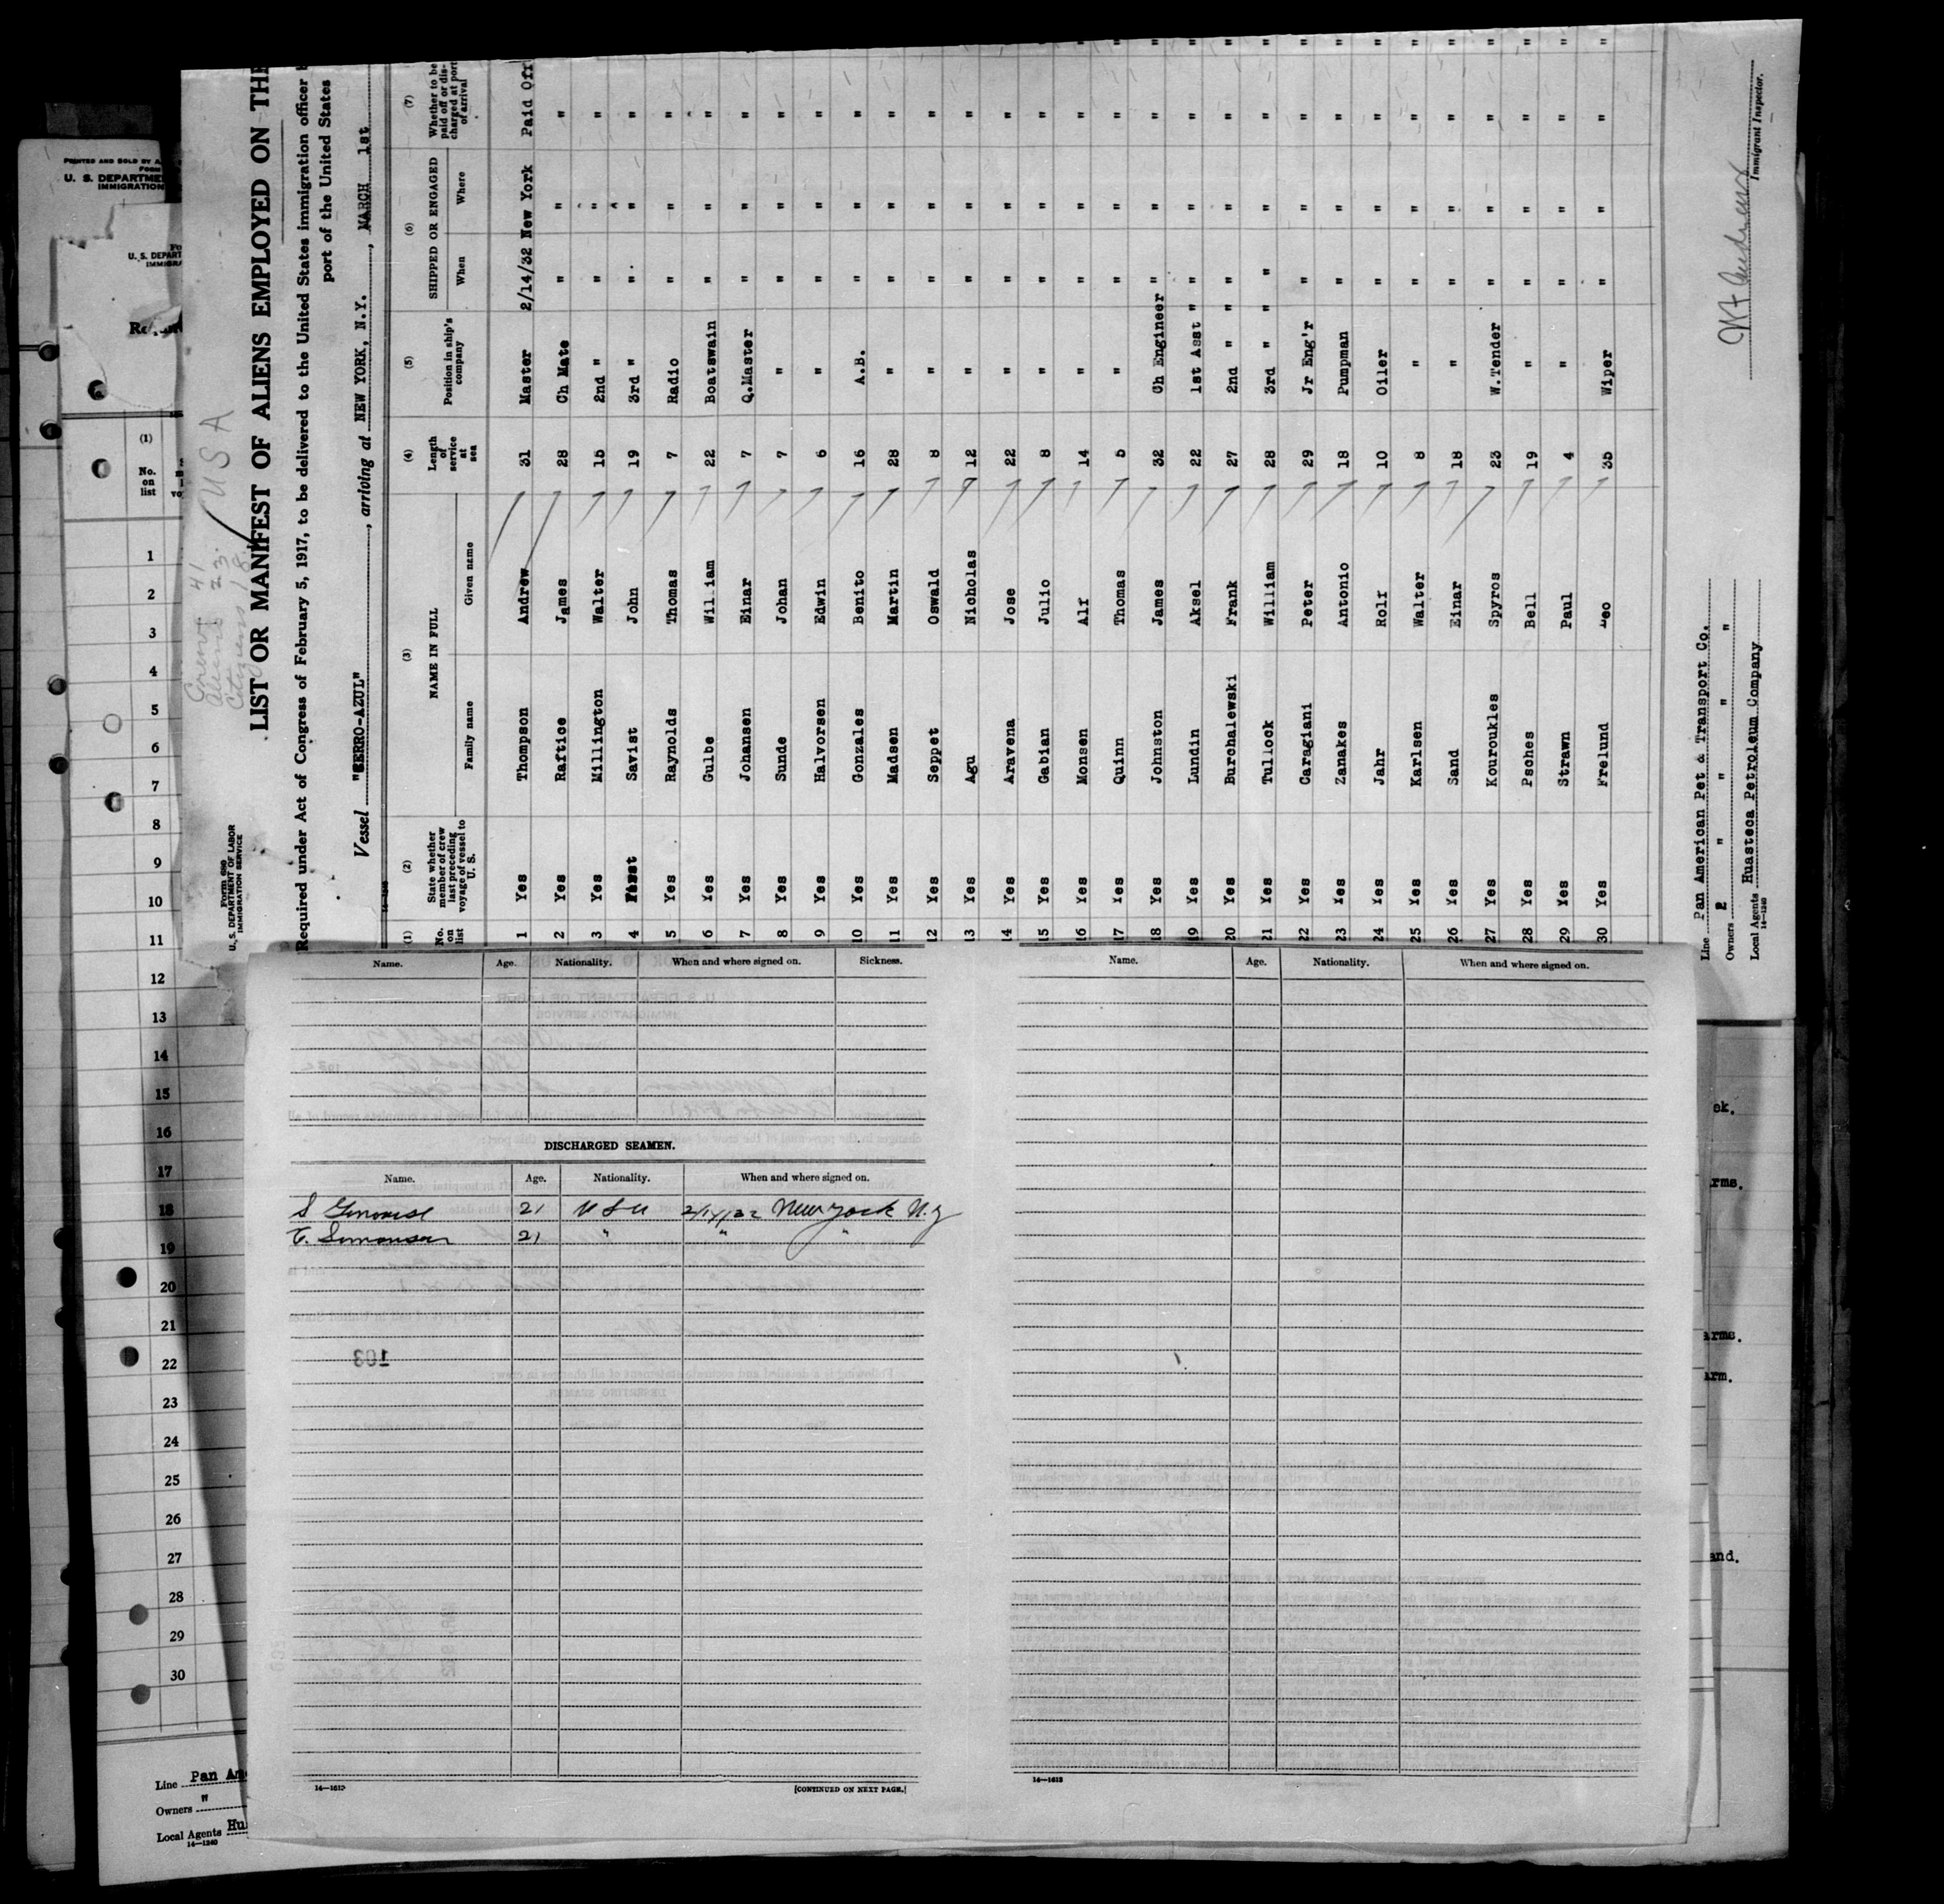 PRINTED AND SOLD BY
U. S. DEPARTME
IMMIGRATION
U. S. DEPART
(1)
No.
on
list
1
2
3
4
5
6
7
8
9
10
11
12
13
14
15
16
17
18
19
20
21
22
23
24
25
26
27
28
29
30
Line Pan Am
Owners "
Local Agents Hu
14—1240
Form 680
U. S. DEPARTMENT OF LABOR
IMMIGRATION SERVICE
Crew 41
Aliens 23
Citizens 18
USA
LIST OR MANIFEST OF ALIENS EMPLOYED ON THE
Required under Act of Congress of February 5, 1917, to be delivered to the United States immigration officer
port of the United States
Vessel "CERRO-AZUL", arriving at NEW YORK, N.Y., MARCH 1st
(1) (2) (3) (4) (5) (6) (7)
No. on list State whether member of crew last preceding voyage of vessel to U. S. NAME IN FULL Family name Given name Length of service at sea Position in ship's company SHIPPED OR ENGAGED When Where Whether to be paid off or discharged at port of arrival
1 Yes Thompson Andrew 31 Master 2/14/32 New York Paid Off
2 Yes Raftice James 28 Ch Mate " " "
3 Yes Millington Walter 15 2nd " " " "
4 First Savist John 19 3rd " " " "
5 Yes Raynolds Thomas 7 Radio " " "
6 Yes Gulbe William 22 Boatswain " " "
7 Yes Johansen Einar 7 Q.Master " " "
8 Yes Sunde Johan 7 " " " "
9 Yes Halvorsen Edwin 6 " " " "
10 Yes Gonzales Benito 16 A.B. " " "
11 Yes Madsen Martin 28 " " " "
12 Yes Seppet Oswald 8 " " " "
13 Yes Agu Nicholas 12 " " " "
14 Yes Aravena Jose 22 " " " "
15 Yes Gabian Julio 8 " " " "
16 Yes Monsen Alf 14 " " " "
17 Yes Quinn Thomas 5 " " " "
18 Yes Johnston James 32 Ch Engineer " " "
19 Yes Lundin Aksel 22 1st Asst " " " "
20 Yes Burchalewski Frank 27 2nd " " " " "
21 Yes Tullock William 28 3rd " " " " "
22 Yes Caragiani Peter 29 Jr Eng'r " " "
23 Yes Zanakes Antonio 18 Pumpman " " "
24 Yes Jahr Rolf 10 Oiler " " "
25 Yes Karlsen Walter 8 " " " "
26 Yes Sand Einar 18 " " " "
27 Yes Kouroukles Spyros 23 W.Tender " " "
28 Yes Psches Bell 19 " " " "
29 Yes Strawn Paul 4 " " " "
30 Yes Frelund Leo 35 Wiper " " "
Line Pan American Pet & Transport Co.
Owners " " " "
Local Agents Huasteca Petroleum Company
14—1240
Immigrant Inspector.
Name. Age. Nationality. When and where signed on. Sickness.
DISCHARGED SEAMEN.
Name. Age. Nationality. When and where signed on.
21 U S A 2/14/32 New York N.Y
T. Simonsen 21 " " "
103
14—1613
[CONTINUED ON NEXT PAGE.]
Name. Age. Nationality. When and where signed on.
14—1613
ek.
rms.
arms.
arm.
and.